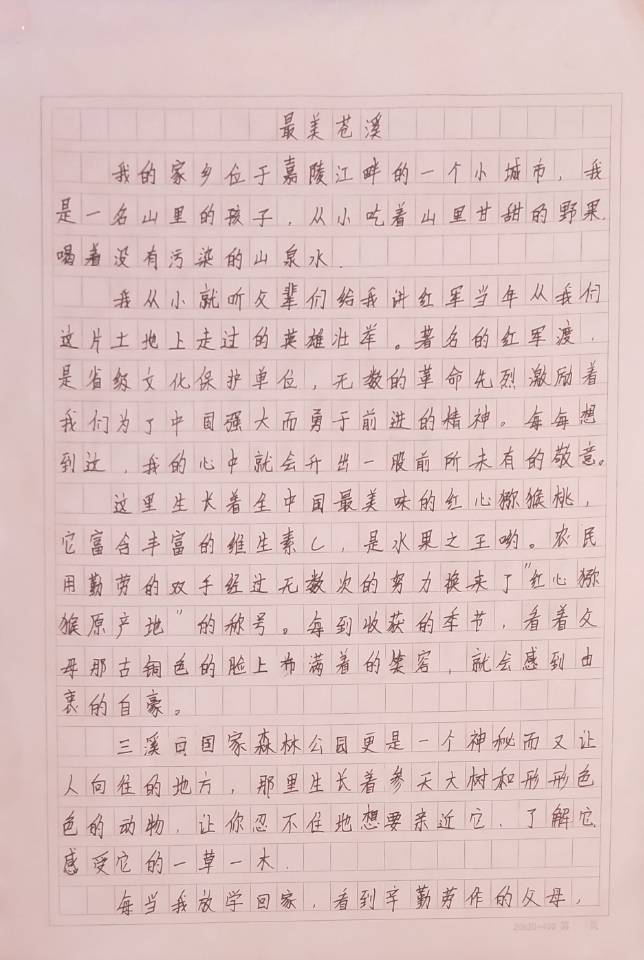 最美苍溪
我的家乡位于嘉陵江畔的一个小城市，我
是一名山里的孩子，从小吃着山里甘甜的野果，
喝着没有污染的山泉水.
我从小就听父辈们给我讲红军当年从我们
这片土地上走过的英雄壮举。著名的红军渡，
是省级文化保护单位，无数的革命先烈激励着
我们为了中国强大而勇于前进的精神。每每想
到这，我的心中就会升出一股前所未有的敬意。
这里生长着全中国最美味的红心猕猴桃，
它富含丰富的维生素C，是水果之王哟。农民
用勤劳的双手经过无数次的努力换来了“红心猕
猴原产地”的称号。每到收获的季节，看着父
母那古铜色的脸上布满着的笑容，就会感到由
衷的自豪。
三溪口国家森林公园更是一个神秘而又让
人向往的地方，那里生长着参天大树和形形色
色的动物，让你忍不住地想要亲近它、了解它
感受它的一草一木.
每当我放学回家，看到辛勤劳作的父母，
20×20=400 第 页